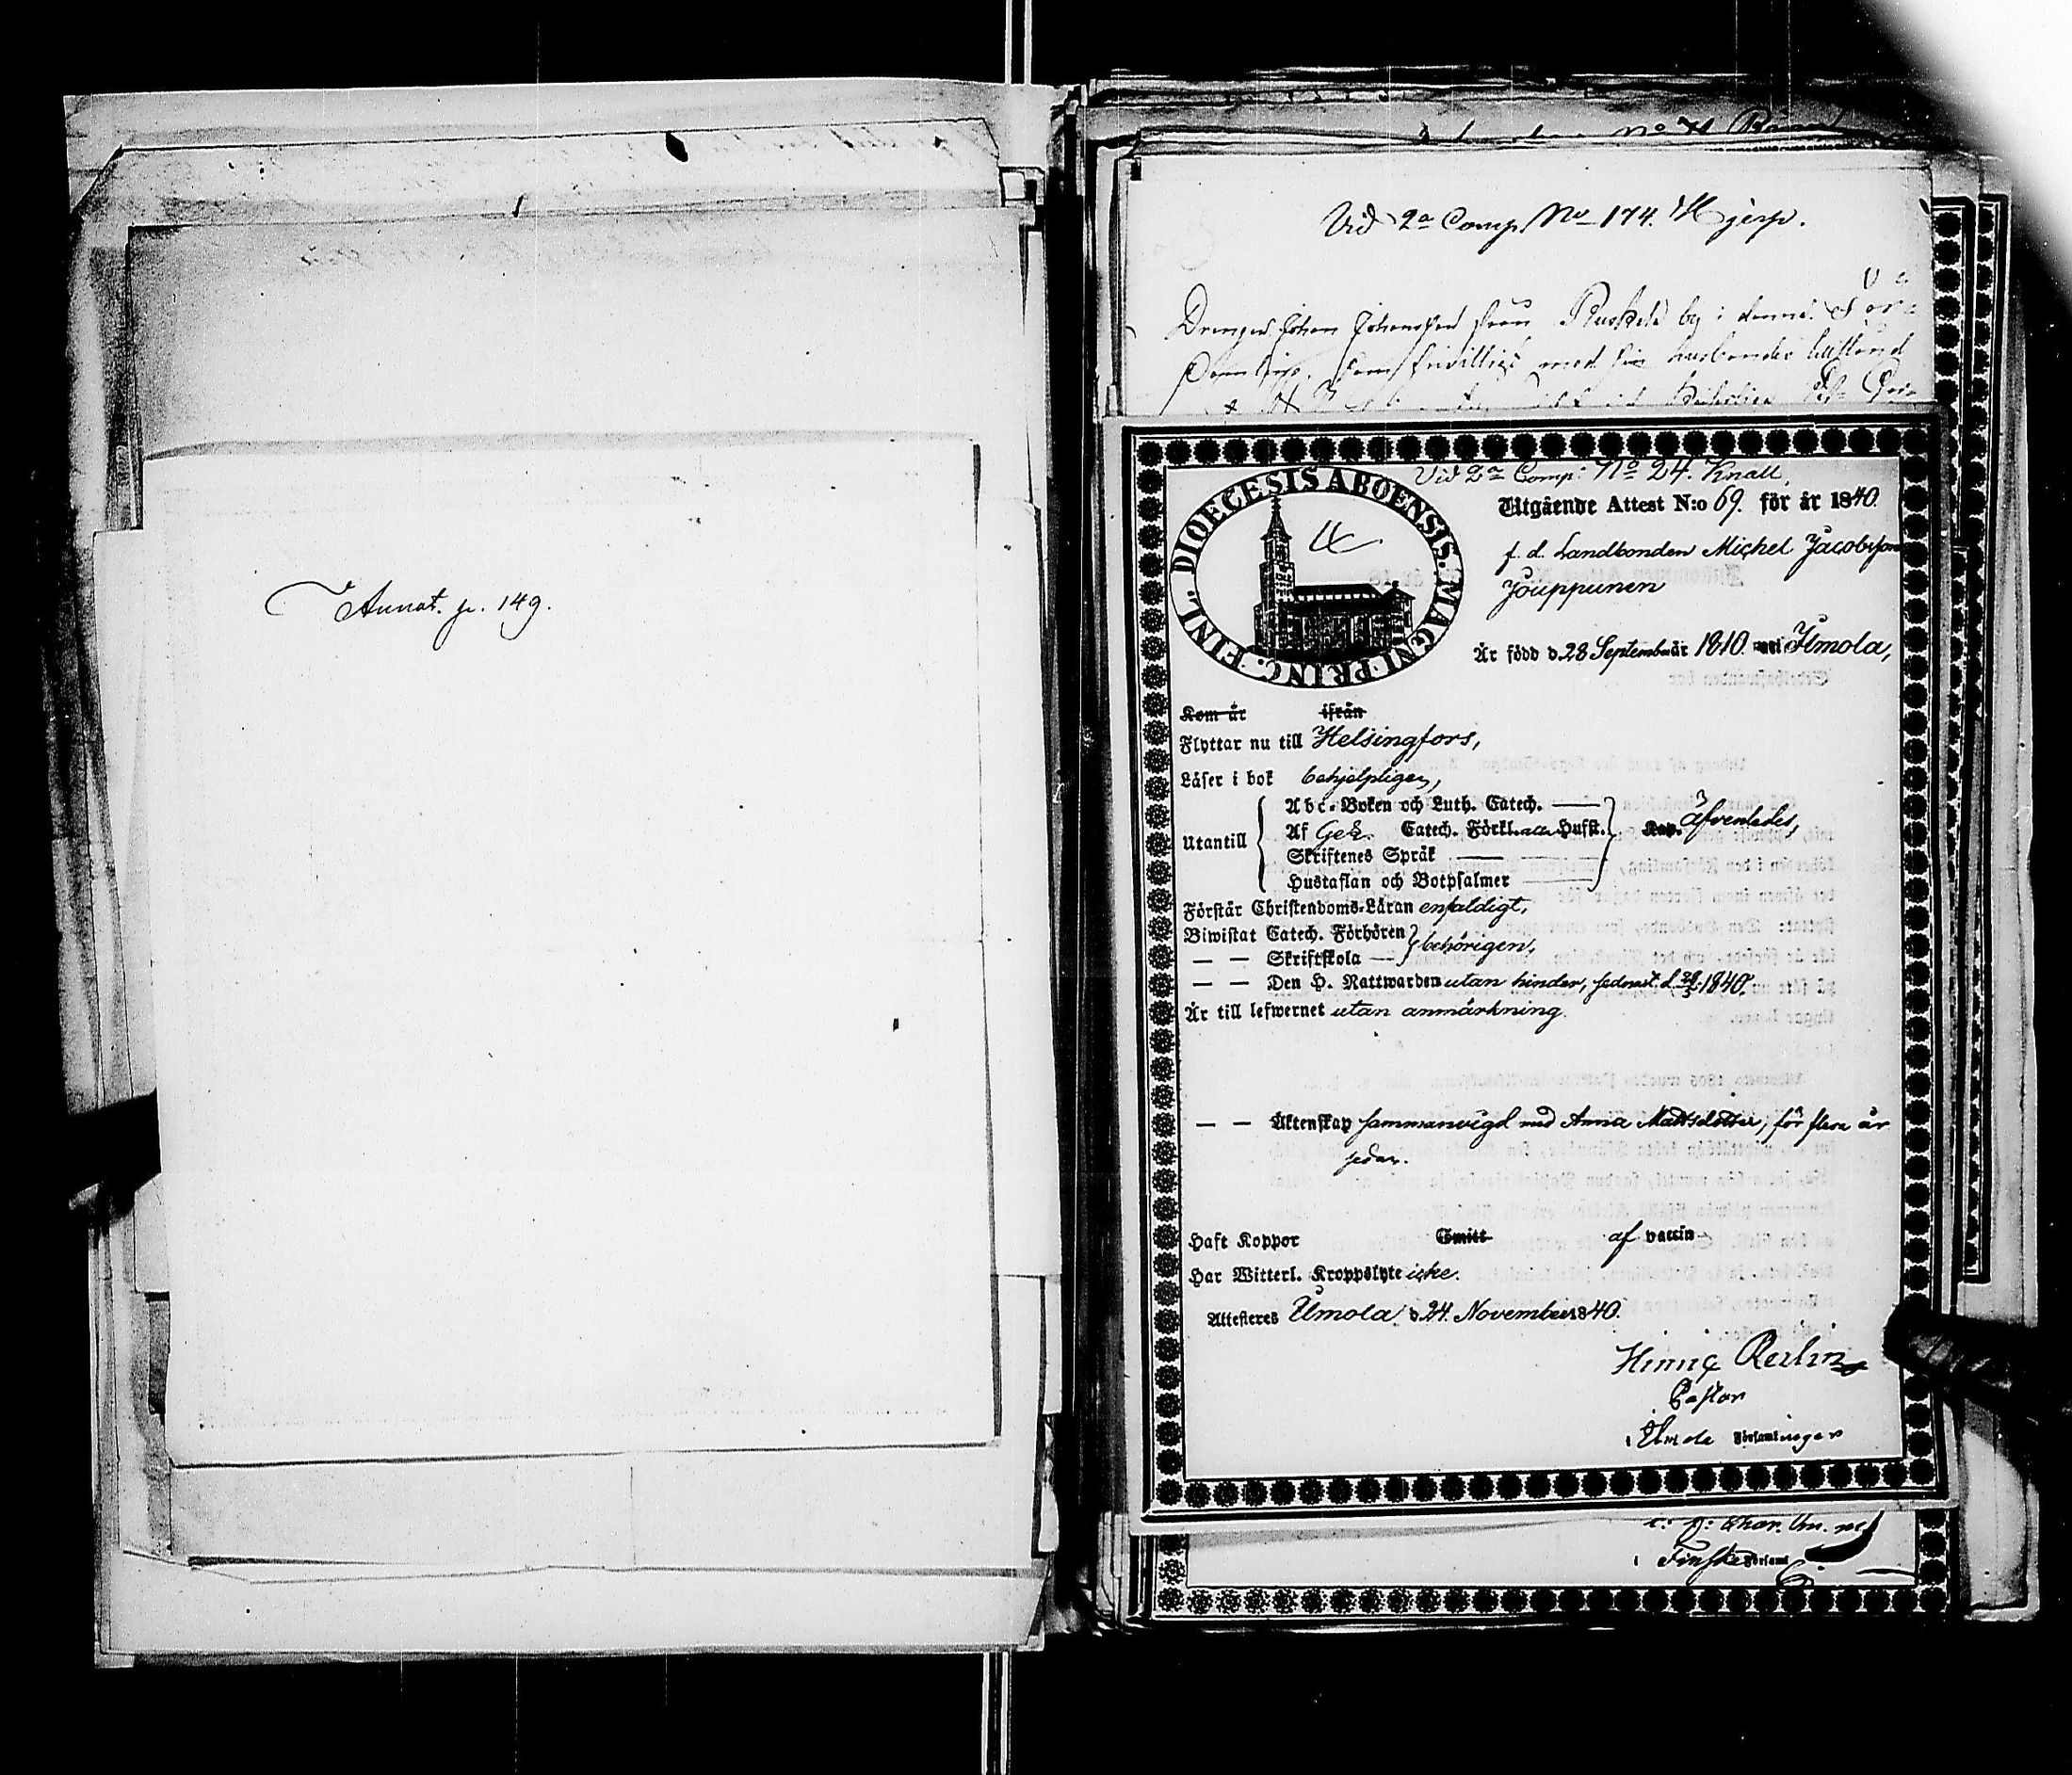 Annot. p. 149.
Vid 2a Comp. No 174. Hjerp.
Drengen Johan Johansson från by i denna
som frivilligt med sin husbondes tillstånd
Vid 2a Comp: No 24. Knall,
DIOECESIS ABOENSIS. MAGNI PRINC. FINL.
Utgående Attest N:o 69. för år 1840.
f. d. Landbonden Michel Jacobsson
Jouppunen
Är född d. 28 September år 1810. uti Ilmola,
Kom år ifrån
Flyttar nu till Helsingfors,
Läser i bok behjelpligen,
Abc-Boken och Luth. Catech. —
Utantill Af Gez. Catech. Förkl. Hufst. Kap. äfvenledes,
Skriftenes Språk —
Hustaflan och Botpsalmer —
Förstår Christendoms-Läran enfaldigt,
Biwistat Catech. Förhören behörigen,
— — Skriftskola —
— — Den H. Nattwarden utan hinder, sednast d. 29/3 1840.
Är till lefwernet utan anmärkning.
— — Äktenskap sammanvigd med Anna Mattsdotter, för flera år
sedan.
Haft Koppor Smitt af vaccin
Har Witterl. Kroppslyte icke.
Attesteres Ilmola d. 24. November 1840.
Pastor
i Ilmola Församlingen
i Finska Församl